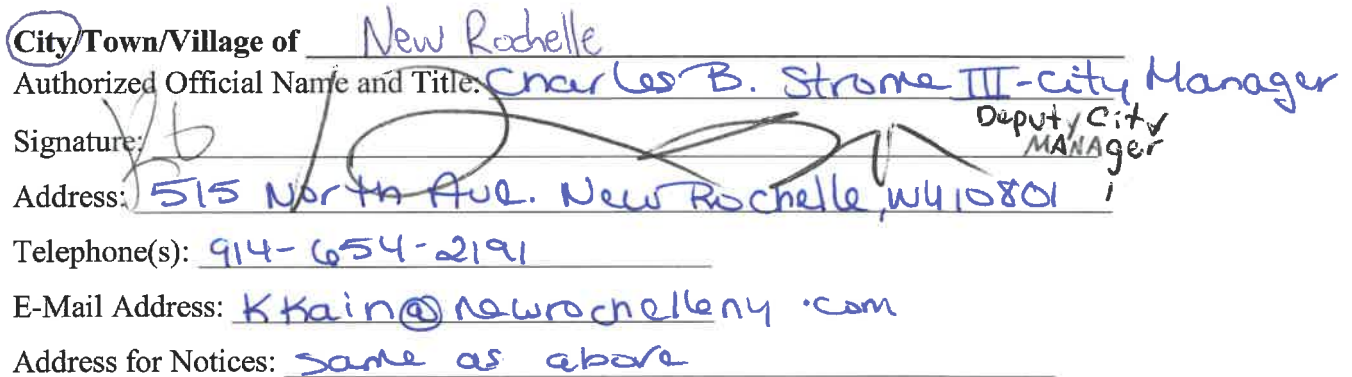 City/Town/Village of New Rochelle
Authorized Official Name and Title: Charles B. Strome III-City Manager
Signature: Deputy City MANAger
Address: 515 North Ave. New Rochelle, NY 10801
Telephone(s): 914-654-2191
E-Mail Address: KKain@newrochelleny.com
Address for Notices: Same as above